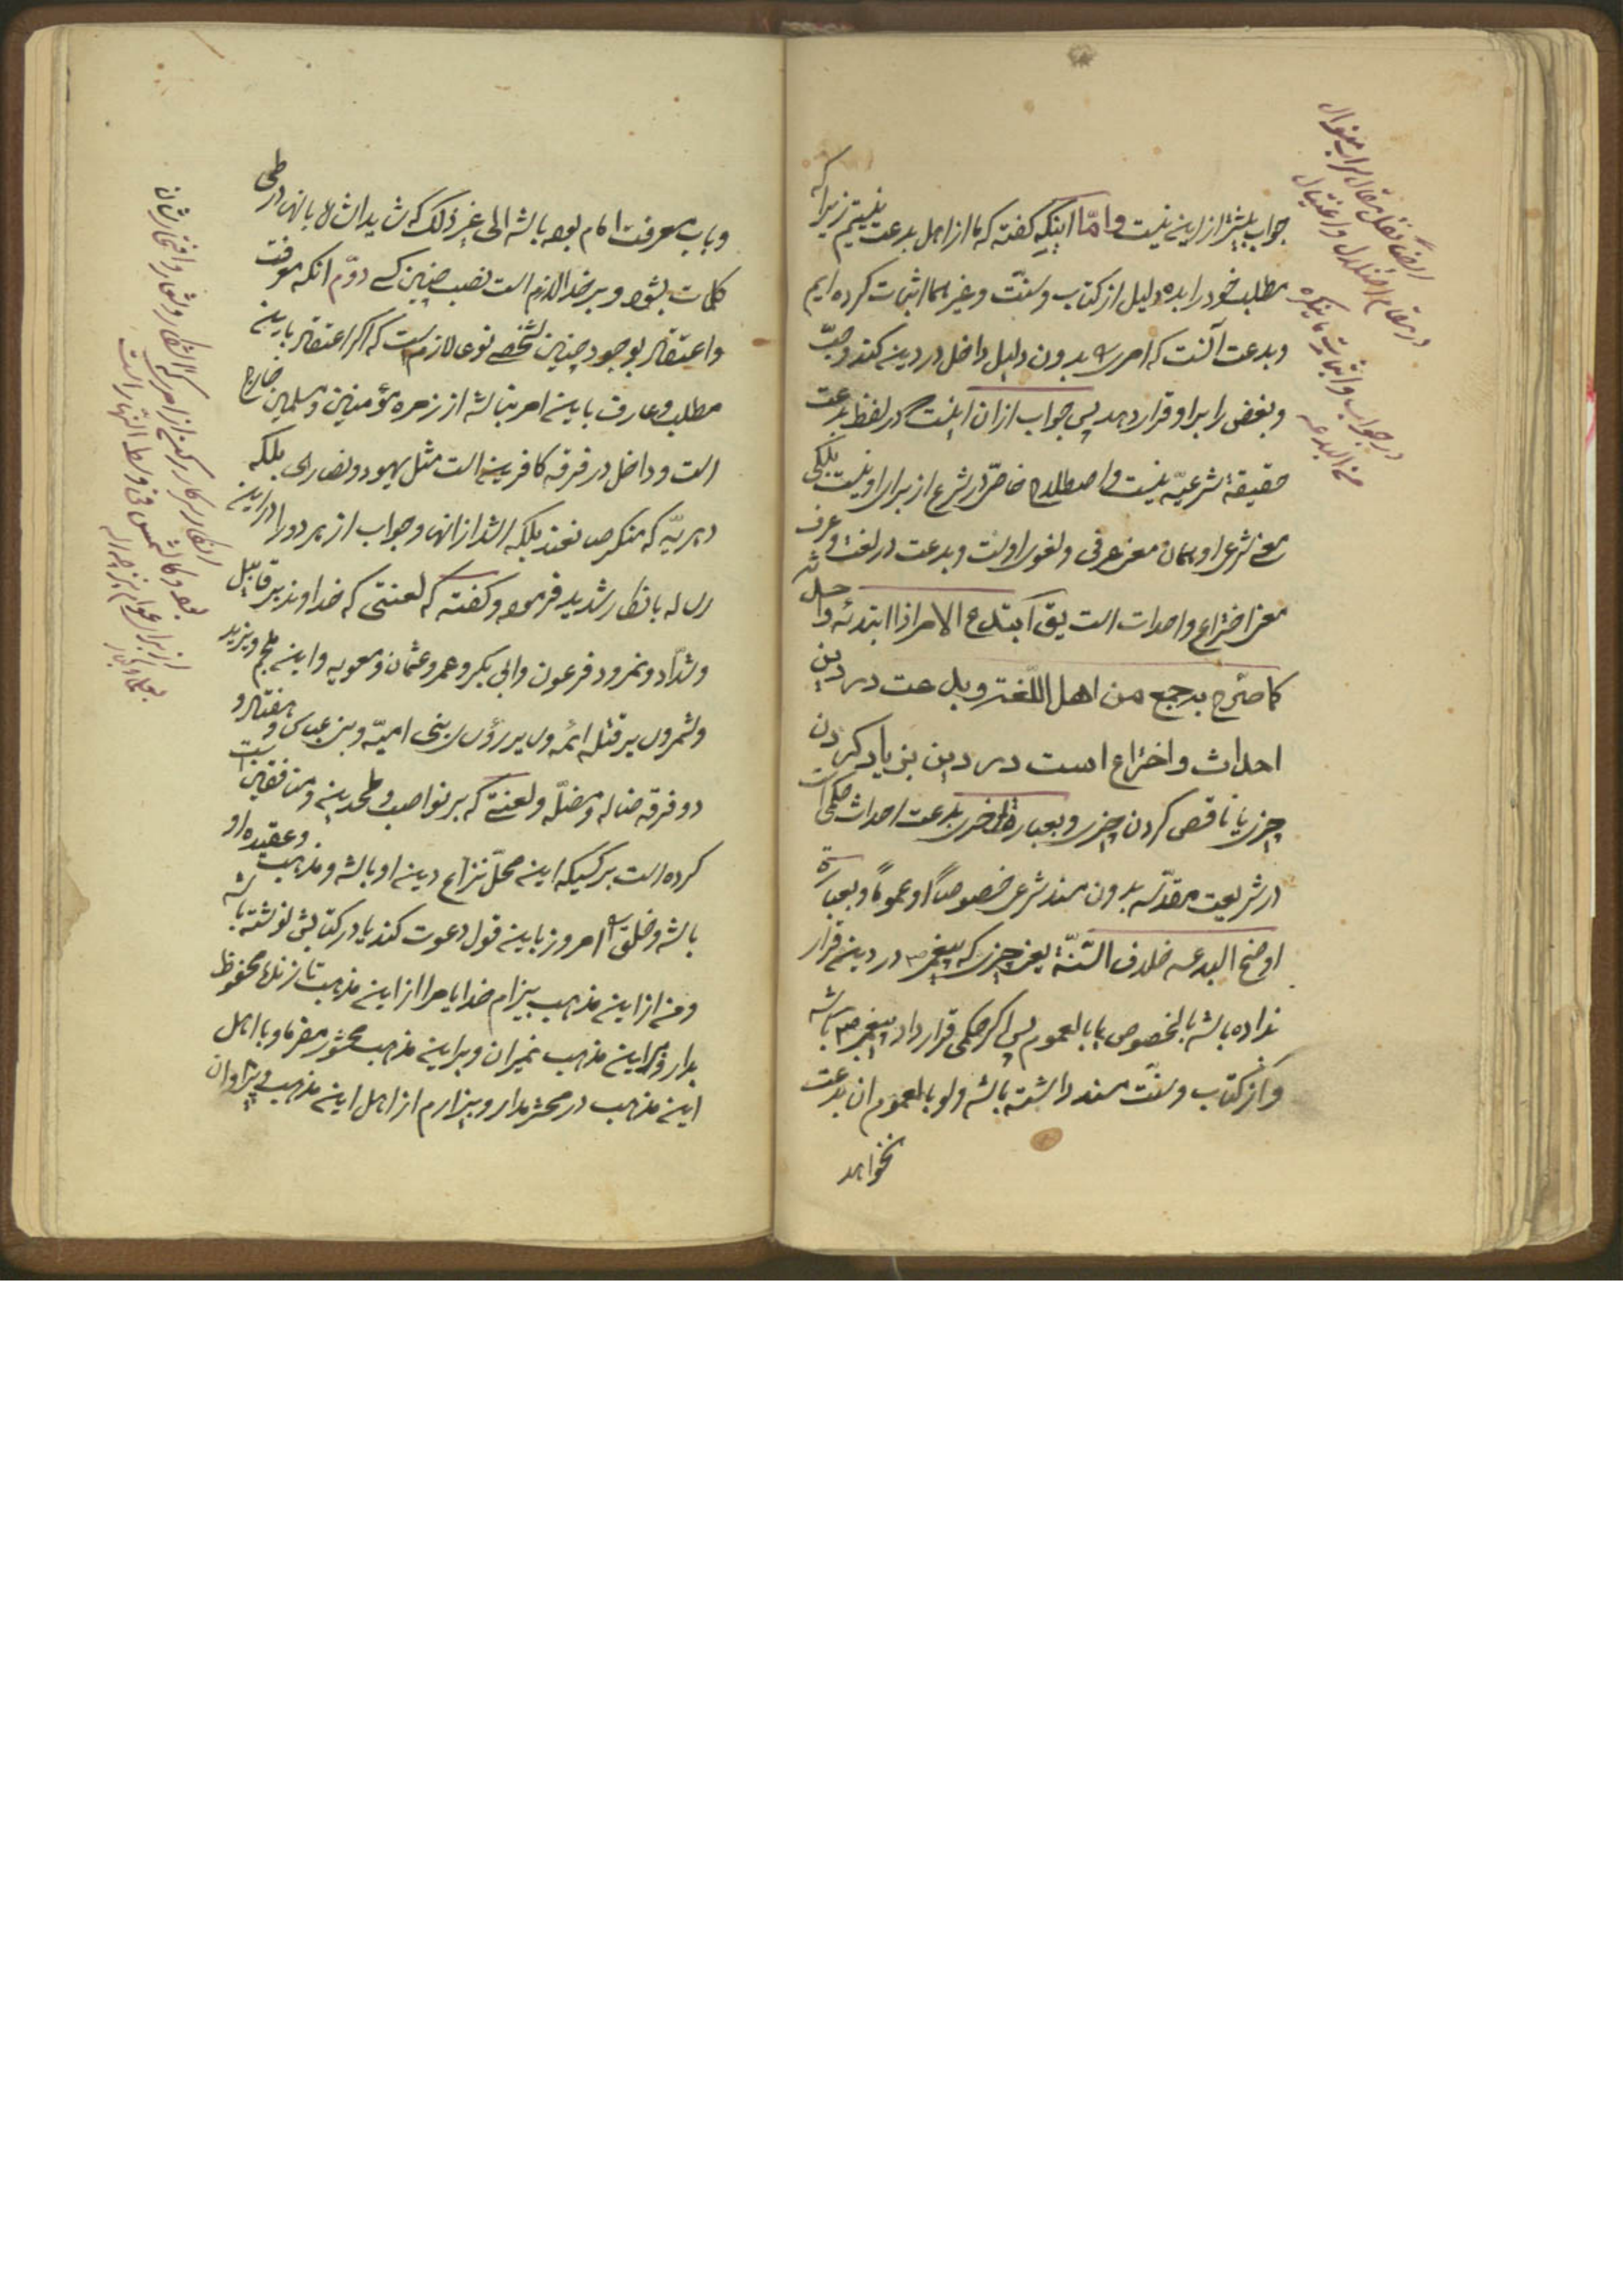 جواب بیشتر از این نیست و امّا اینکه گفته که ما از اهل بدعت نیستیم زیرا که
مطلب خود را بده دلیل از کتاب و سنّت و غیر هما اثبات کرده ایم
و بدعت آنست که امری بدون دلیل داخل در دین کند و حبّ
و بغض را برا و قرار دهد پس جواب از ان اینست که در لفظ بدعت
حقیقة شرعیّه نیست و اصطلاح خاصّی در شرع از برای او نیست بلکه
معنی شرعی او همان معنی عرفی و لغوی اوست و بدعت در لغت و عرف
معنی اختراع و احداث است یق ابتدع الامر اذا ابتدئه و احدثه
کما صرّح به جمع من اهل اللّغة و بدعت در دین
احداث و اختراع است در دین بزیاد کردن
چیزی یا ناقص کردن چیزی و بعبارة اخری بدعت احداث حکمی است
در شریعت مقدّسه بدون سند شرعی خصوصاً او عموماً و بعبارة
اوضح البدعه خلاف السّنّة یعنی چیزی که پیغمبر ص در دین قرار
نداده باشد بالخصوص یا بالعموم پس اگر حکمی قرار داد پیغمبر ص باشد
و از کتاب و سنّت سند داشته باشد ولو بالعموم ان بدعت
نخواهد
در جواب و اثبات ما ینکره
من البدعه
و باب معرفت امام بوده باشد الی غیر ذلک که شاید اشاره بانها در طی
کلمات بشود و بر خدا لازم است نصب چنین کسی دوّم انکه معرفت
و اعتقاد بوجود چنین شخصی نوعا لازم است که اگر اعتقاد باین
مطلب و عارف باین امر نباشد از زمره مؤمنین و مسلمین خارج
است و داخل در فرقه کافرین است مثل یهود و نصاری بلکه
دهریّه که منکر صانعند بلکه اشد از انها و جواب از هر دو را در این
رساله بانکار شدید فرموده و گفته که لعنتی که خداوند بر قابیل
و شدّاد و نمرود و فرعون و ابی بکر و عمر و عثمان و معویه و ابن ملجم و یزید
و شمر و سایر قتله ائمه و سایر رؤس بنی امیّه و بنی عباس و هفتاد و
دو فرقه ضاله و مضلّه و لعنتی که بر نواصب و ملحدین و منافقین
کرده است بر کسیکه این محلّ نزاع دین او باشد و مذهب و عقیده او
باشد و خلق را امروز باین قول دعوت کند یا در کتابش نوشته باشد
و من از این مذهب بیزارم خدایا مرا از این مذهب تا زنده‌ام محفوظ
بدار و مرا بر این مذهب نمیران و بر این مذهب محشور مفرما و با اهل
این مذهب در محشر مدار و بیزارم از اهل این مذهب و پیروان